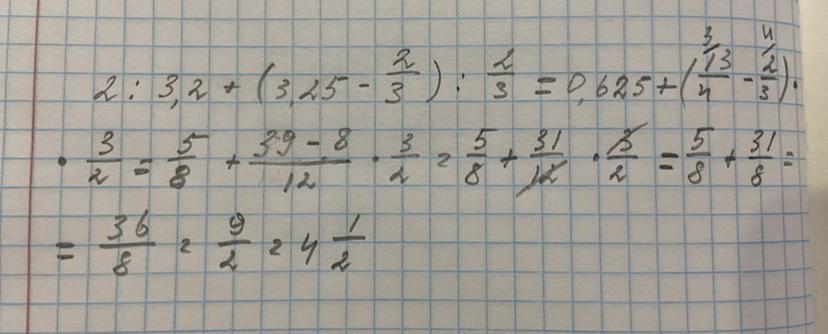 2 : 3,2 + (3,25 - 2/3) : 2/3 = 0,625 + (13/4 ³⁄ - 2/3 ⁴⁄) ·
· 3/2 = 5/8 + (39 - 8)/12 · 3/2 = 5/8 + 31/12 · 3/2 = 5/8 + 31/8 =
= 36/8 = 9/2 = 4 1/2